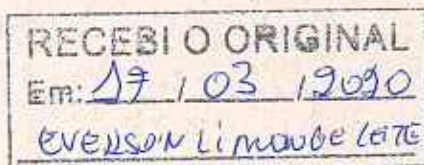 RECEBI O ORIGINAL
Em: 17 / 03 / 2020
EVERSON Limau de LEITE